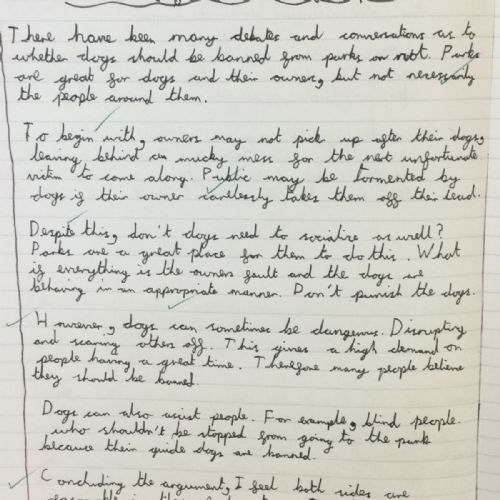 There have been many debates and conversations as to
whether dogs should be banned from parks or not. Parks
are great for dogs and their owners, but not necessarily
the people around them.
To begin with, owners may not pick up after their dogs,
leaving behind a mucky mess for the next unfortunate
victim to come along. Public may be tormented by
dogs if their owner carelessly takes them off their lead.
Despite this, don't dogs need to socialise as well?
Parks are a great place for them to do this. What
if everything is the owners fault and the dogs are
behaving in an appropriate manner. Don't punish the dogs.
However, dogs can sometimes be dangerous. Disrupting
and scaring others off. This gives a high demand on
people having a great time. Therefore many people believe
they should be banned.
Dogs can also assist people. For example, blind people.
who shouldn't be stopped from going to the park
because their guide dogs are banned.
Concluding the argument, I feel both sides are